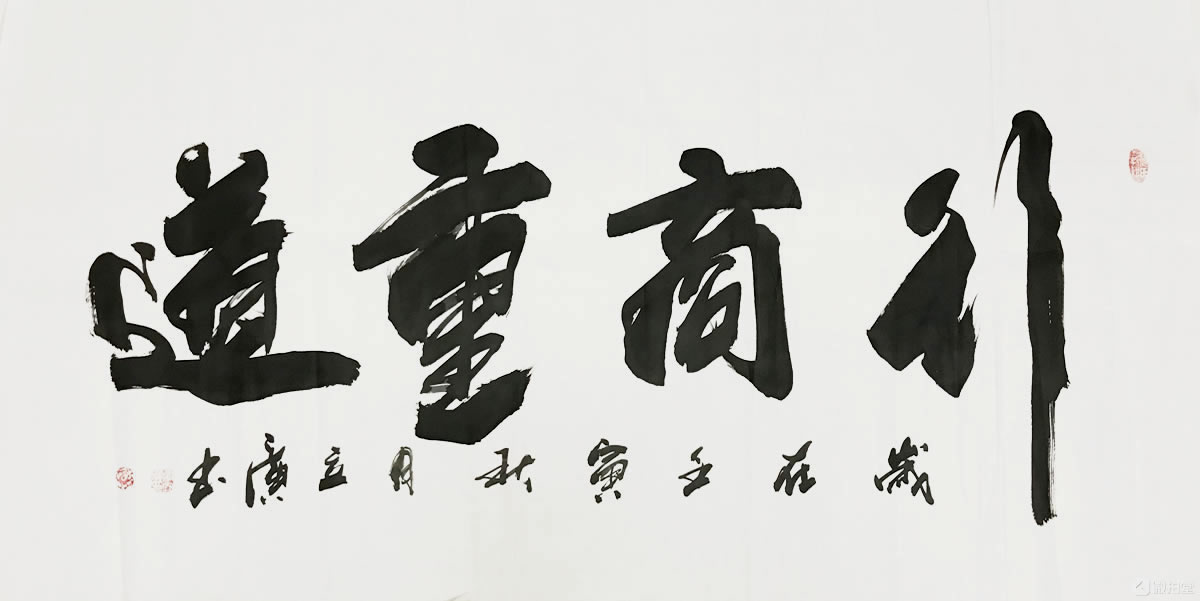 行商重道
歲在壬寅秋月立廣书